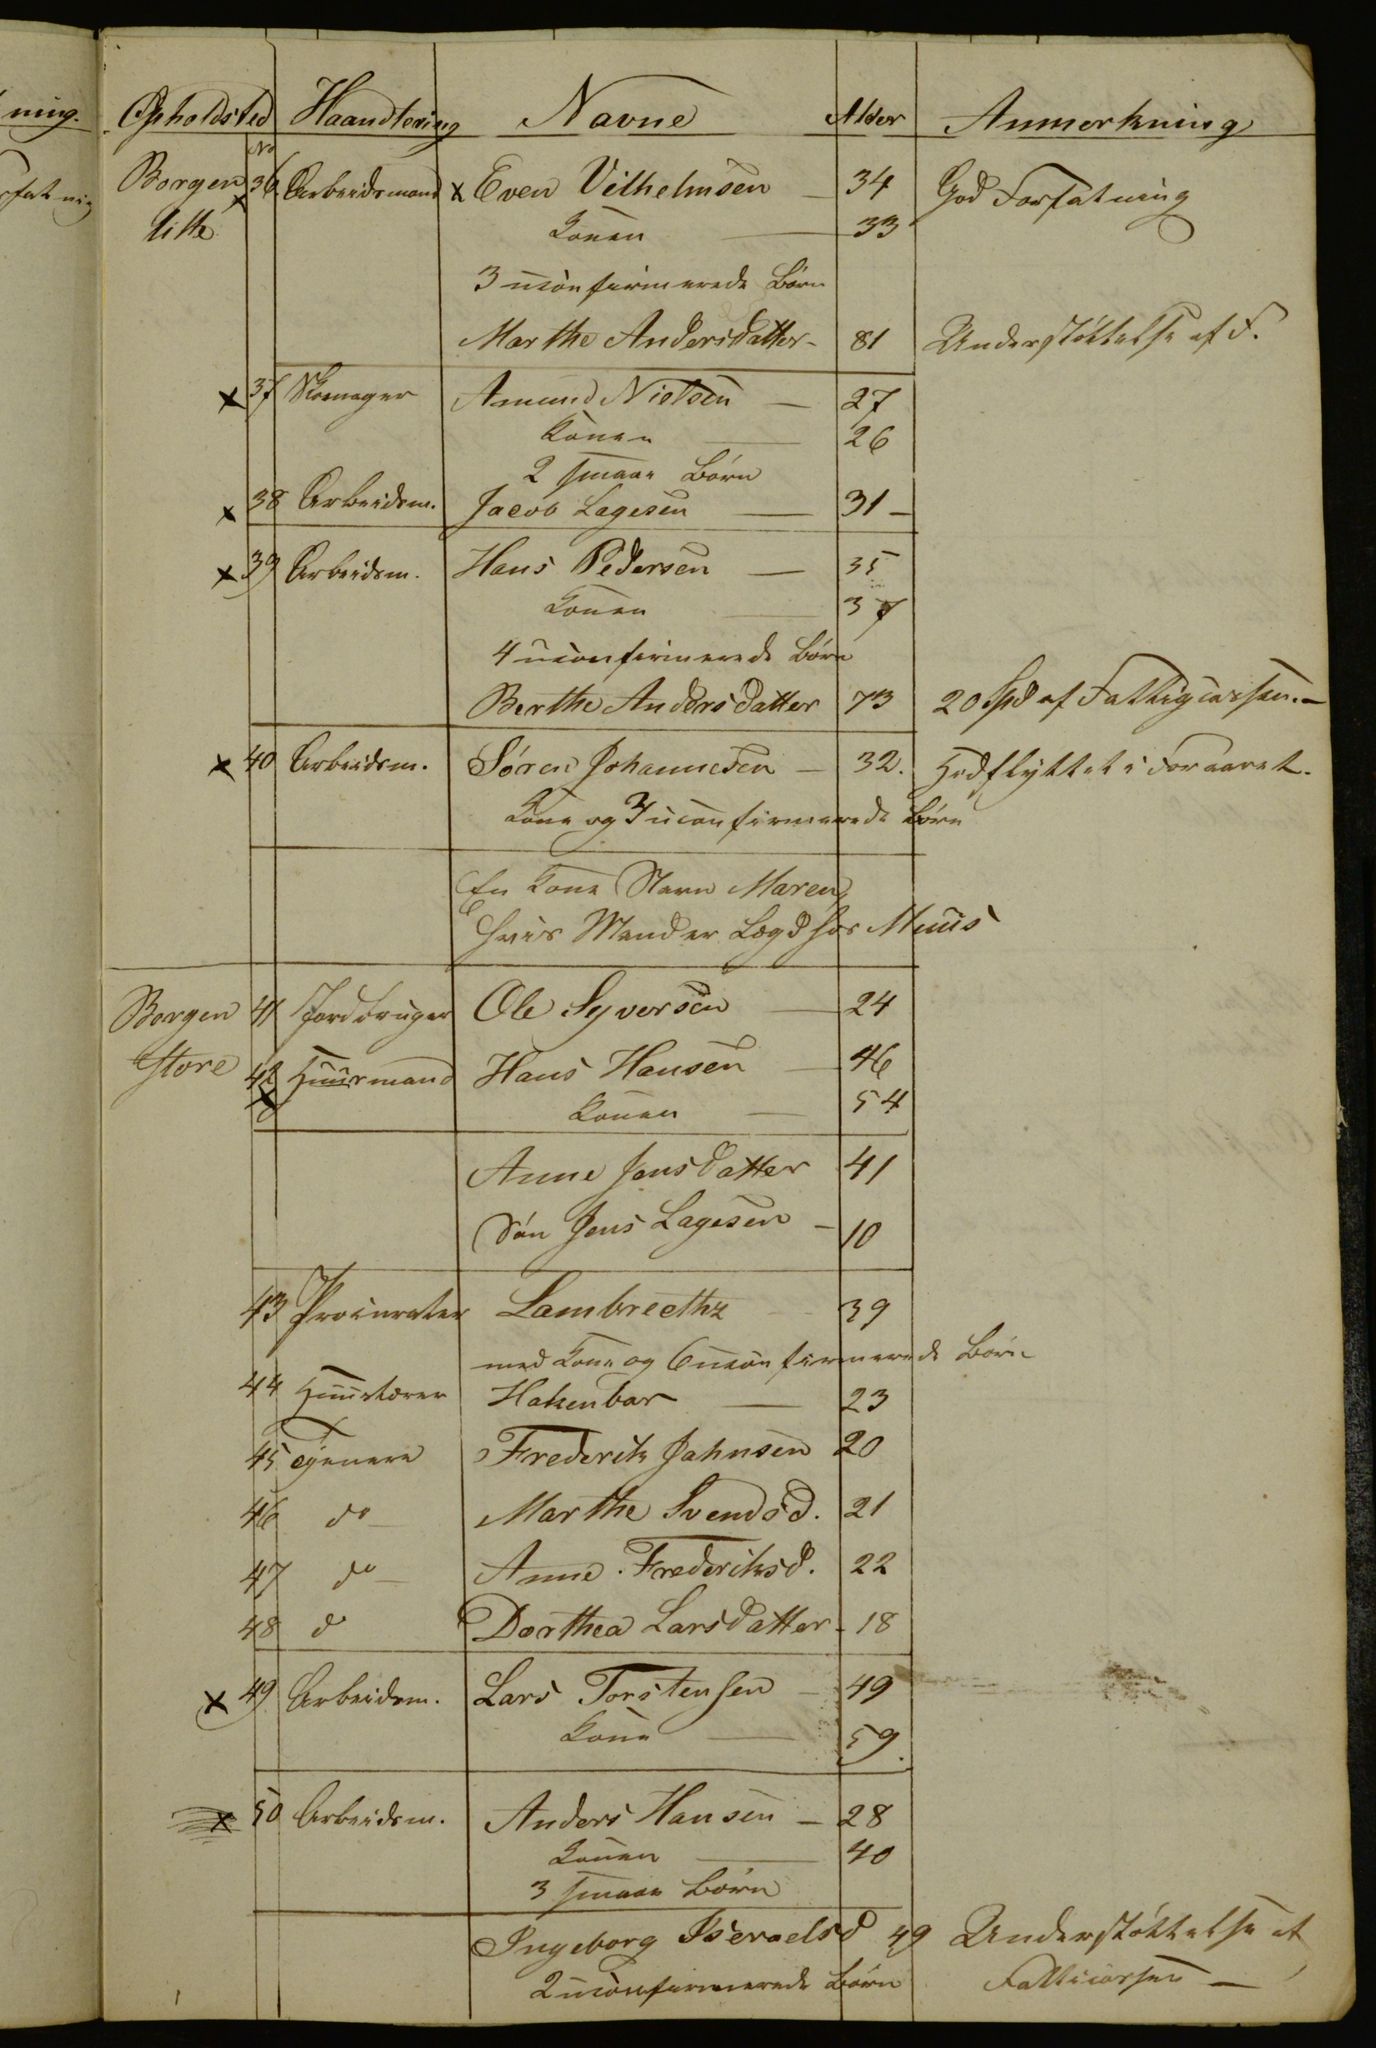 ning.
Opholdsted Haandtering Navne Alder Anmerkning
No
Borgen x 36 Arbeidsmand x Even Vilhelmsen 34 God Forfatning
lille Konen 33
3 uconfirmerede Børn
Marthe Andersdatter 81 Understøttelse af F.
x 37 Skomager Amund Nielsen 27
Konen 26
2 smaae Børn
x 38 Arbeidsm. Jacob Lagesen 31
x 39 Arbeidsm. Hans Pedersen 35
Konen 37
4 uconfirmerede Børn
Berthe Andersdatter 73 20 Spd af Fattigcassen.
x 40 Arbeidsm. Søren Johannesen 32. Hidflyttet i Foraaret.
Kone og 3 uconfirmerede Børn
En Kone Navn Maren
hvis Mand er Lægd hos Muus
Borgen 41 Jordbruger Ole Syversen 24
Store 42 x Huusmand Hans Hansen 46
Konen 54
Anne Jensdatter 41
Søn Jens Lagesen 10
43 Procurator Lambrecthz 39
med Kone og 6 uconfirmerede Børn
44 Huuslærer Hakenbar 23
45 Tjenere Frederik Jahnsen 20
46 do Marthe Svendsd. 21
47 do Anne Frederiksd. 22
48 d Dorthea Larsdatter 18
x 49 Arbeidsm. Lars Torstensen 49
Kone 59.
x 50 Arbeidsm. Anders Hansen 28
Konen 40
3 smaae Børn
Ingeborg Iseraelsd 49 Understøttelse af
2 uconfirmerede Børn